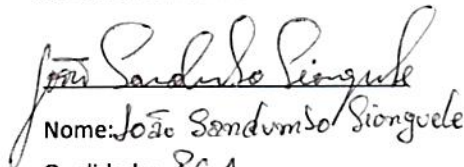 João Sandumbo Sionguele
Nome: João Sandumbo Sionguele
PCA